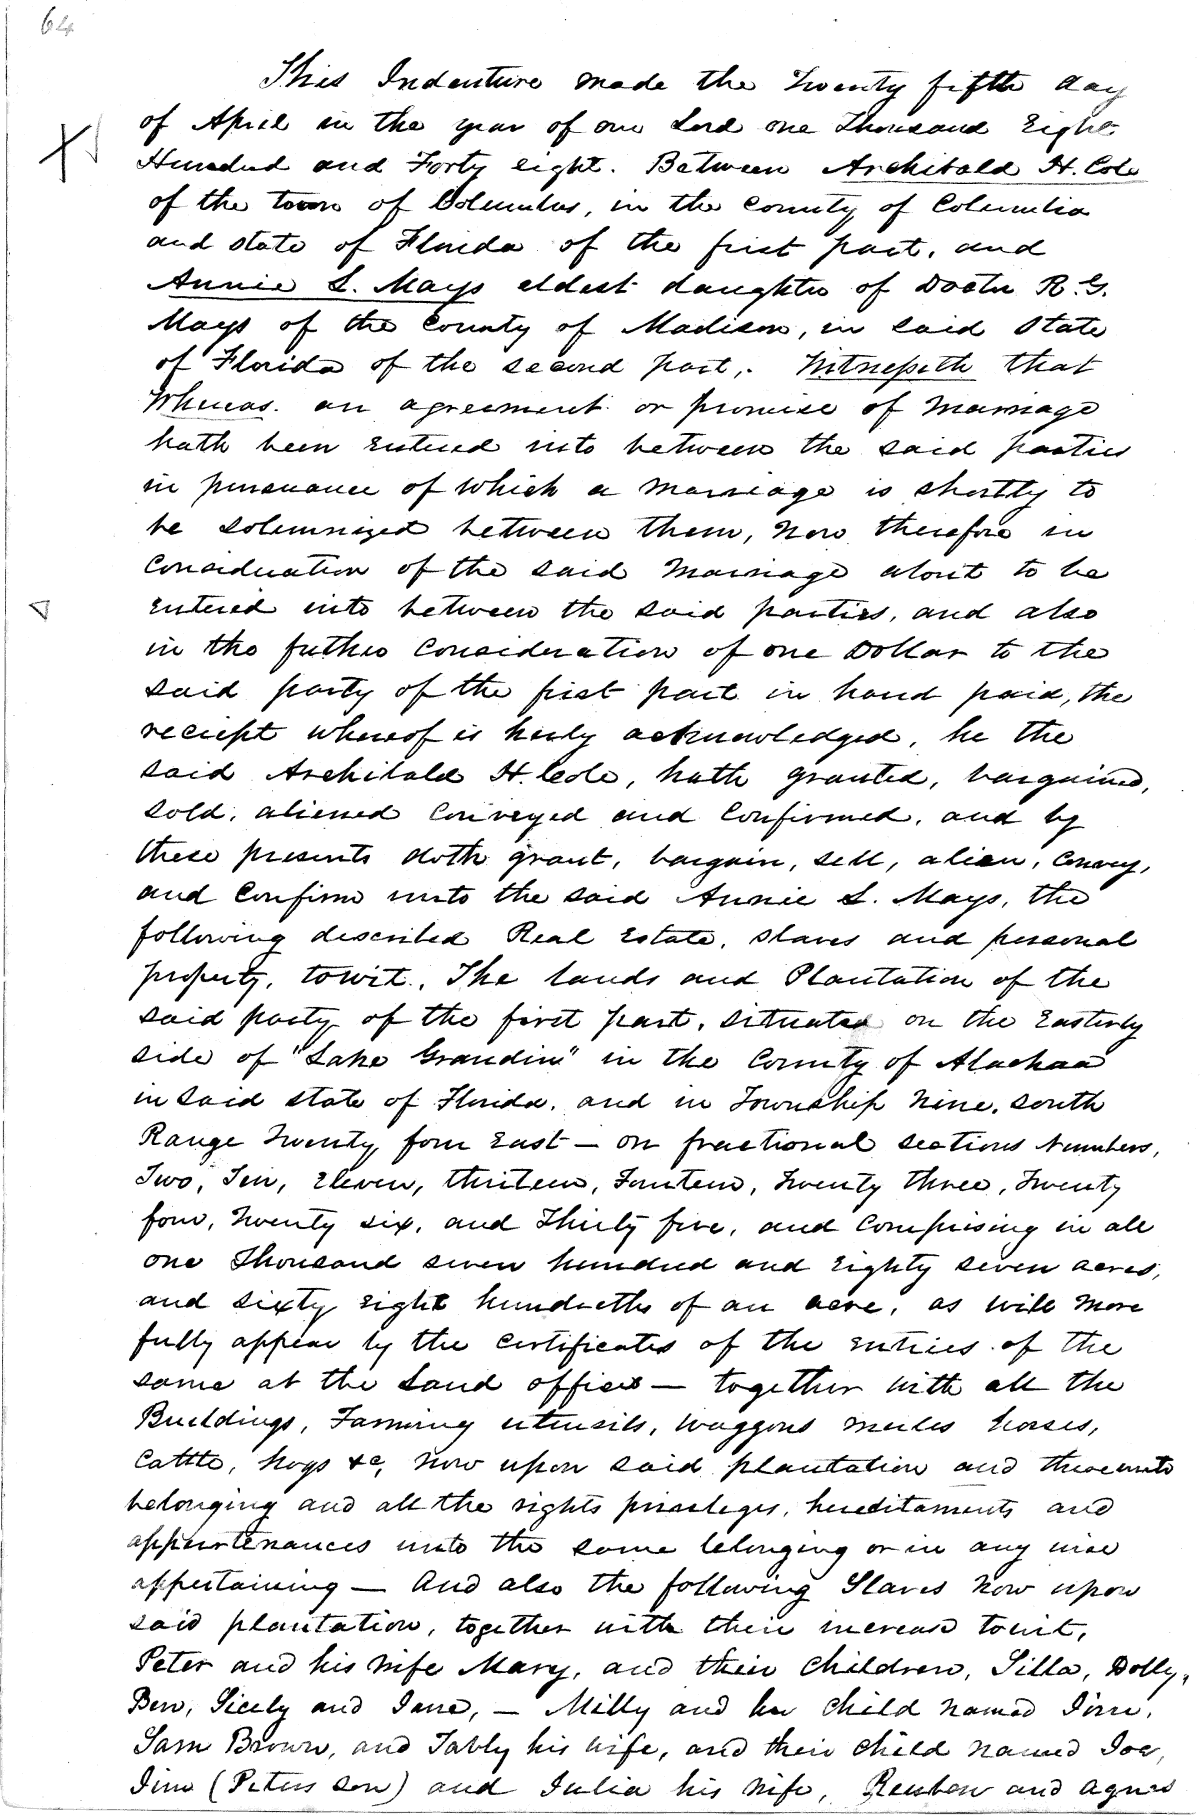 64
This Indenture made the Twenty fifth day
of April in the year of our Lord one Thousand Eight
Hundred and Forty eight. Between Archibald H. Cole
of the town of Columbus, in the County of Columbia
and state of Florida of the first part, and
Annie S. Mays eldest daughter of Doctor R. G.
Mays of the County of Madison, in said State
of Florida of the second part,. Witnesseth that
Whereas. an agreement or promise of Marriage
hath been Entered into between the said parties
in pursuance of which a Marriage is shortly to
be solemnized between them, Now therefore in
Consideration of the said Marriage about to be
Entered into between the said parties, and also
in the futher Consideration of one Dollar to the
said party of the first part in hand paid, the
reciept whereof is herby acknowledged, he the
said Archibald H. Cole, hath granted, bargained,
sold, aliened Conveyed and Confirmed, and by
these presents doth grant, bargain, sell, alien, Convey,
and Confirm unto the said Annie S. Mays, the
following described Real Estate, slaves and personal
property, towit., The lands and Plantation of the
said party of the first part, situated on the Easterly
side of "Lake Grandin" in the County of Alachua
in said state of Florida, and in Township Nine, south
Range Twenty four East — on fractional sections Numbers,
Two, Ten, Eleven, thirteen, Fourteen, Twenty three, Twenty
four, Twenty six, and Thirty five, and Comprising in all
one Thousand seven hundred and Eighty seven acres,
and sixty Eight hundreths of an acre, as will More
fully appear by the Certificates of the Entries of the
same at the Land office — together with all the
Buildings, Farming utensils, Waggons mules horses,
Cattle, hogs &c, Now upon said plantation and thereunto
belonging and all the rights privileges, hereditaments and
appurtenances unto the same belonging or in any wise
appertaining — And also the following Slaves Now upon
said plantation, together with their increase towit,
Peter and his Wife Mary, and their Children, Silla, Dolly,
Ben, Sicily and Jane, — Milly and her Child Named Jim,
Sam Brown, and Tabby his wife, and their Child Named Joe,
Jim (Peters son) and Julia his Wife, Reuben and Agnes